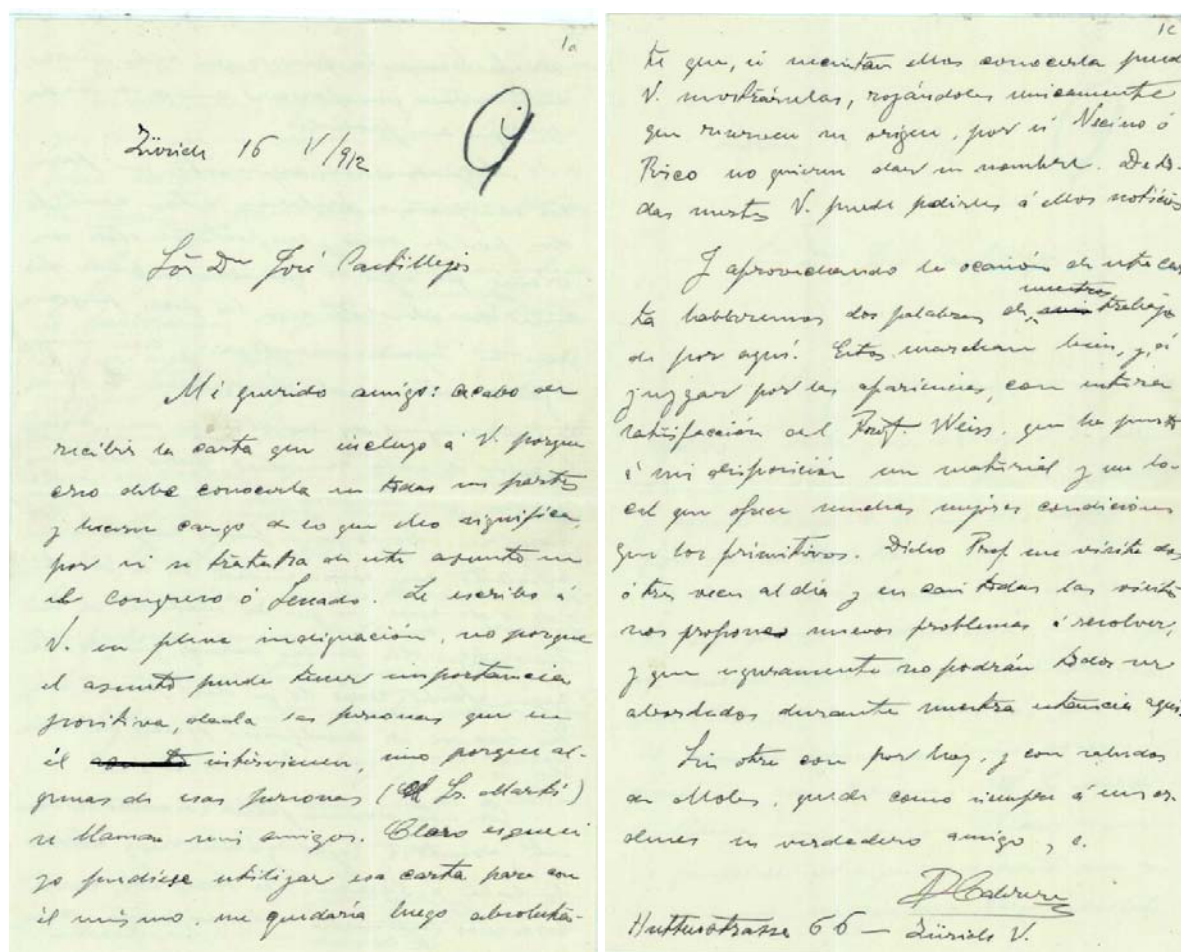 1a
Zürich 16 V/912
Sor Dn José Castillejos
Mi querido amigo: Acabo de
recibir la carta que incluyo á V. porque
creo debe conocerla en todas sus partes
y hacerse cargo de lo que ello significa,
por si se tratara de este asunto en
el Congreso ó Senado. Le escribo á
V. en plena indignación, no porque
el asunto puede tener importancia
positiva, dada las personas que en
él intervienen, sino porque al-
gunas de esas personas (el Sr. Martí)
se llaman mis amigos. Claro es que si
yo pudiese utilizar esa carta para con
él mismo, me quedaría luego absoluta-
1c
te que, si necesitan ellos conocerla puede
V. mostrárselas, rogándoles unicamente
que reserven su origen, por si Vecino ó
Risco no quieren dar su nombre. De to-
das suertes V. puede pedirles á ellos noticias
Y aprovechando la ocasión de esta car
ta hablaremos dos palabras de nuestros trabajos
de por aquí. Estos marchan bien, y, á
juzgar por las apariencias, con entera
satisfacción del Prof. Weiss, que ha puesto
á mi disposición un material y un lo-
cal que ofrece muchas mejores condiciones
que los primitivos. Dicho Prof. me visita dos
ó tres veces al día y en casi todas las visitas
nos propone nuevos problemas á resolver,
y que seguramente no podrán todos ser
abordados durante nuestra estancia aquí.
Sin otra cosa por hoy, y con saludos
de Moles, queda como siempre á sus or-
denes su verdadero amigo, c.
BCabrera
Huttenstrasse 66 — Zürich V.